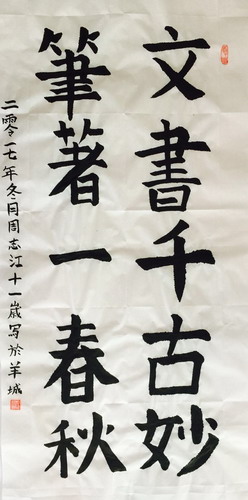 文書千古妙
筆著一春秋
二零一七年冬月周志江十一歲寫於羊城